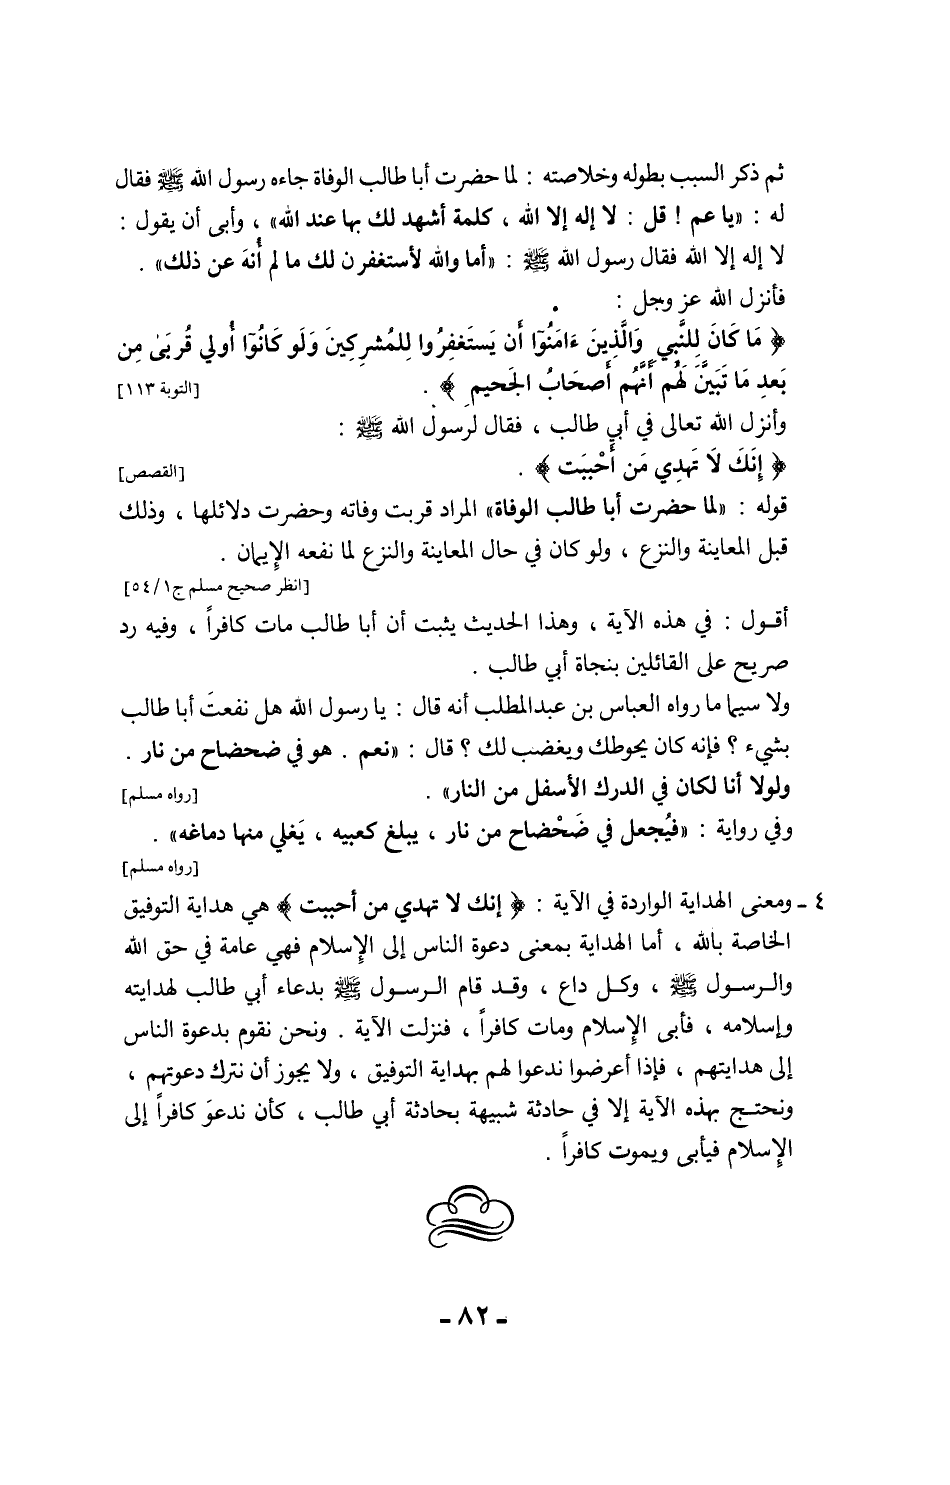 ثم ذكر السبب بطوله وخلاصته : لما حضرت أبا طالب الوفاة جاءه رسول الله ﷺ فقال
له : «يا عم ! قل : لا إله إلا الله ، كلمة أشهد لك بها عند الله» ، وأبى أن يقول :
لا إله إلا الله فقال رسول الله ﷺ : «أما والله لأستغفرن لك ما لم أُنهَ عن ذلك» .
فأنزل الله عز وجل :
﴿ مَا كَانَ لِلنَّبِي وَالَّذِينَ ءَامَنُوٓا أَن يَستَغفِرُوا لِلمُشرِكِينَ وَلَو كَانُوٓا أُولي قُربَىٰ مِن
بَعدِ مَا تَبَيَّنَ لَهُم أَنَّهُم أَصحَابُ الجَحيمِ ﴾ . [التوبة ١١٣]
وأنزل الله تعالى في أبي طالب ، فقال لرسول الله ﷺ :
﴿ إِنَكَ لَا تَهدِي مَن أَحْبَبَت ﴾ . [القصص]
قوله : «لما حضرت أبا طالب الوفاة» المراد قربت وفاته وحضرت دلائلها ، وذلك
قبل المعاينة والنزع ، ولو كان في حال المعاينة والنزع لما نفعه الإيمان .
[انظر صحيح مسلم ج١/ ٥٤]
أقـول : في هذه الآية ، وهذا الحديث يثبت أن أبا طالب مات كافراً ، وفيه رد
صريح على القائلين بنجاة أبي طالب .
ولا سيما ما رواه العباس بن عبدالمطلب أنه قال : يا رسول الله هل نفعتَ أبا طالب
بشيء ؟ فإنه كان يحوطك ويغضب لك ؟ قال : «نعم . هو في ضحضاح من نار .
ولولا أنا لكان في الدرك الأسفل من النار» . [رواه مسلم]
وفي رواية : «فيُجعل في ضَحْضاح من نار ، يبلغ كعبيه ، يَغلي منها دماغه» .
[رواه مسلم]
٤ - ومعنى الهداية الواردة في الآية : ﴿ إنك لا تهدي من أحببت ﴾ هي هداية التوفيق
الخاصة بالله ، أما الهداية بمعنى دعوة الناس إلى الإسلام فهي عامة في حق الله
والـرسـول ﷺ ، وكـل داع ، وقـد قام الـرسـول ﷺ بدعاء أبي طالب لهدايته
وإسلامه ، فأبى الإسلام ومات كافراً ، فنزلت الآية . ونحن نقوم بدعوة الناس
إلى هدايتهم ، فإذا أعرضوا ندعوا لهم بهداية التوفيق ، ولا يجوز أن نترك دعوتهم ،
ونحتـج بهذه الآية إلا في حادثة شبيهة بحادثة أبي طالب ، كأن ندعوَ كافراً إلى
الإسلام فيأبى ويموت كافراً .
- ٨٢ -